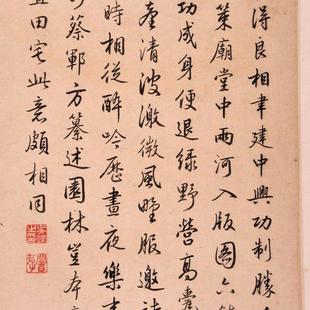 得良相聿建中興功制勝
策廟堂中兩河入版圖六
功成身便退綠野營高
臺清波激微風野服邀
時相從醉吟歷晝夜樂
蔡鄆方纂述園林豈本
且田宅此意頗相同